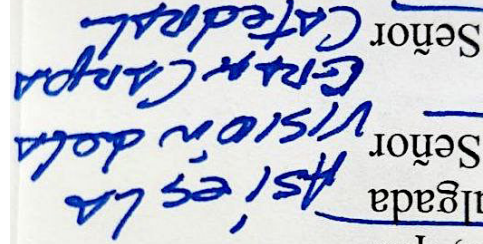 lgada ASÍ ES LA
Señor VISIÓN de LA
GRAN CARPA
Señor CATEDRAL